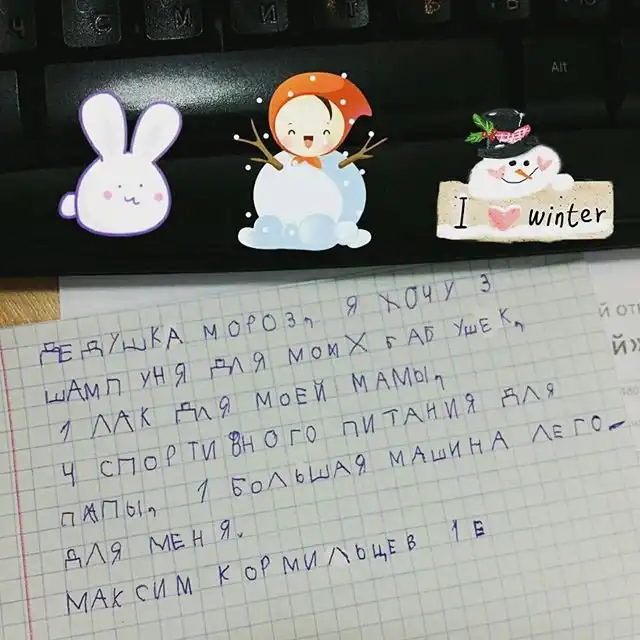 Ч С М И Т Ь
Alt
I winter
ДЕДУШКА МОРОЗ, Я ХОЧУ 3
ШАМПУНЯ ДЛЯ МОИХ БАБУШЕК,
1 ЛАК ДЛЯ МОЕЙ МАМЫ,
4 СПОРТИВНОГО ПИТАНИЯ ДЛЯ
ПАПЫ, 1 БОЛЬШАЯ МАШИНА ЛЕГО-
ДЛЯ МЕНЯ.
МАКСИМ КОРМИЛЬЦЕВ 1 Е